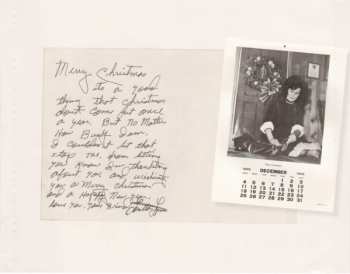 Merry Christmas
Its a good
thing that Christmas
don't come but once
a year. But No Matter
How Busy I am.
I couldn't let that
stop me from letting
you know I'm thinking
about you and wishing
you a Merry Christmas
and a Happy New Year
Love you your
DECEMBER
1 2 3
4 5 6 7 8 9 10
11 12 13 14 15 16 17
18 19 20 21 22 23 24
25 26 27 28 29 30 31